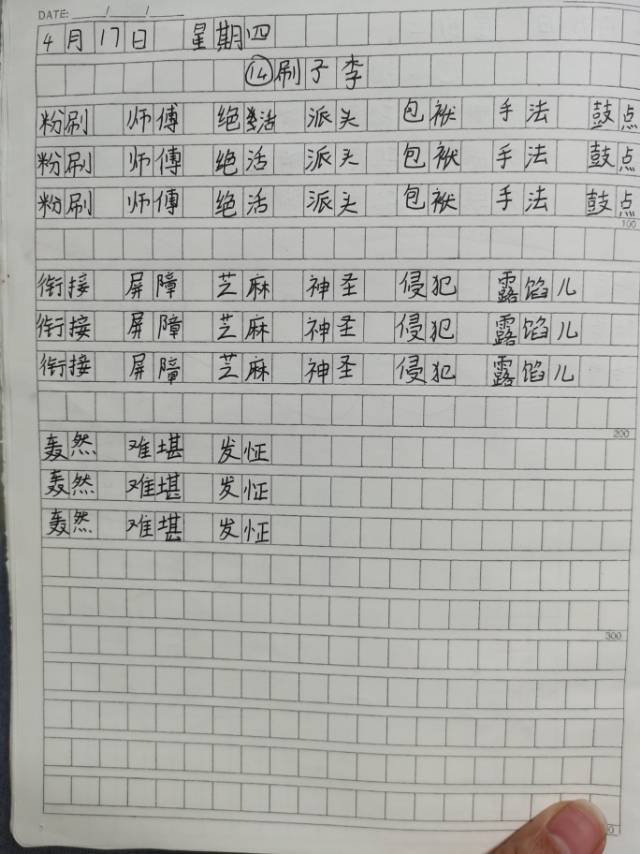 DATE: ____/____/____
4月17日 星期四
⑭刷子李
粉刷 师傅 绝活 派头 包袱 手法 鼓点
粉刷 师傅 绝活 派头 包袱 手法 鼓点
粉刷 师傅 绝活 派头 包袱 手法 鼓点
100
衔接 屏障 芝麻 神圣 侵犯 露馅儿
衔接 屏障 芝麻 神圣 侵犯 露馅儿
衔接 屏障 芝麻 神圣 侵犯 露馅儿
200
轰然 难堪 发怔
轰然 难堪 发怔
轰然 难堪 发怔
300